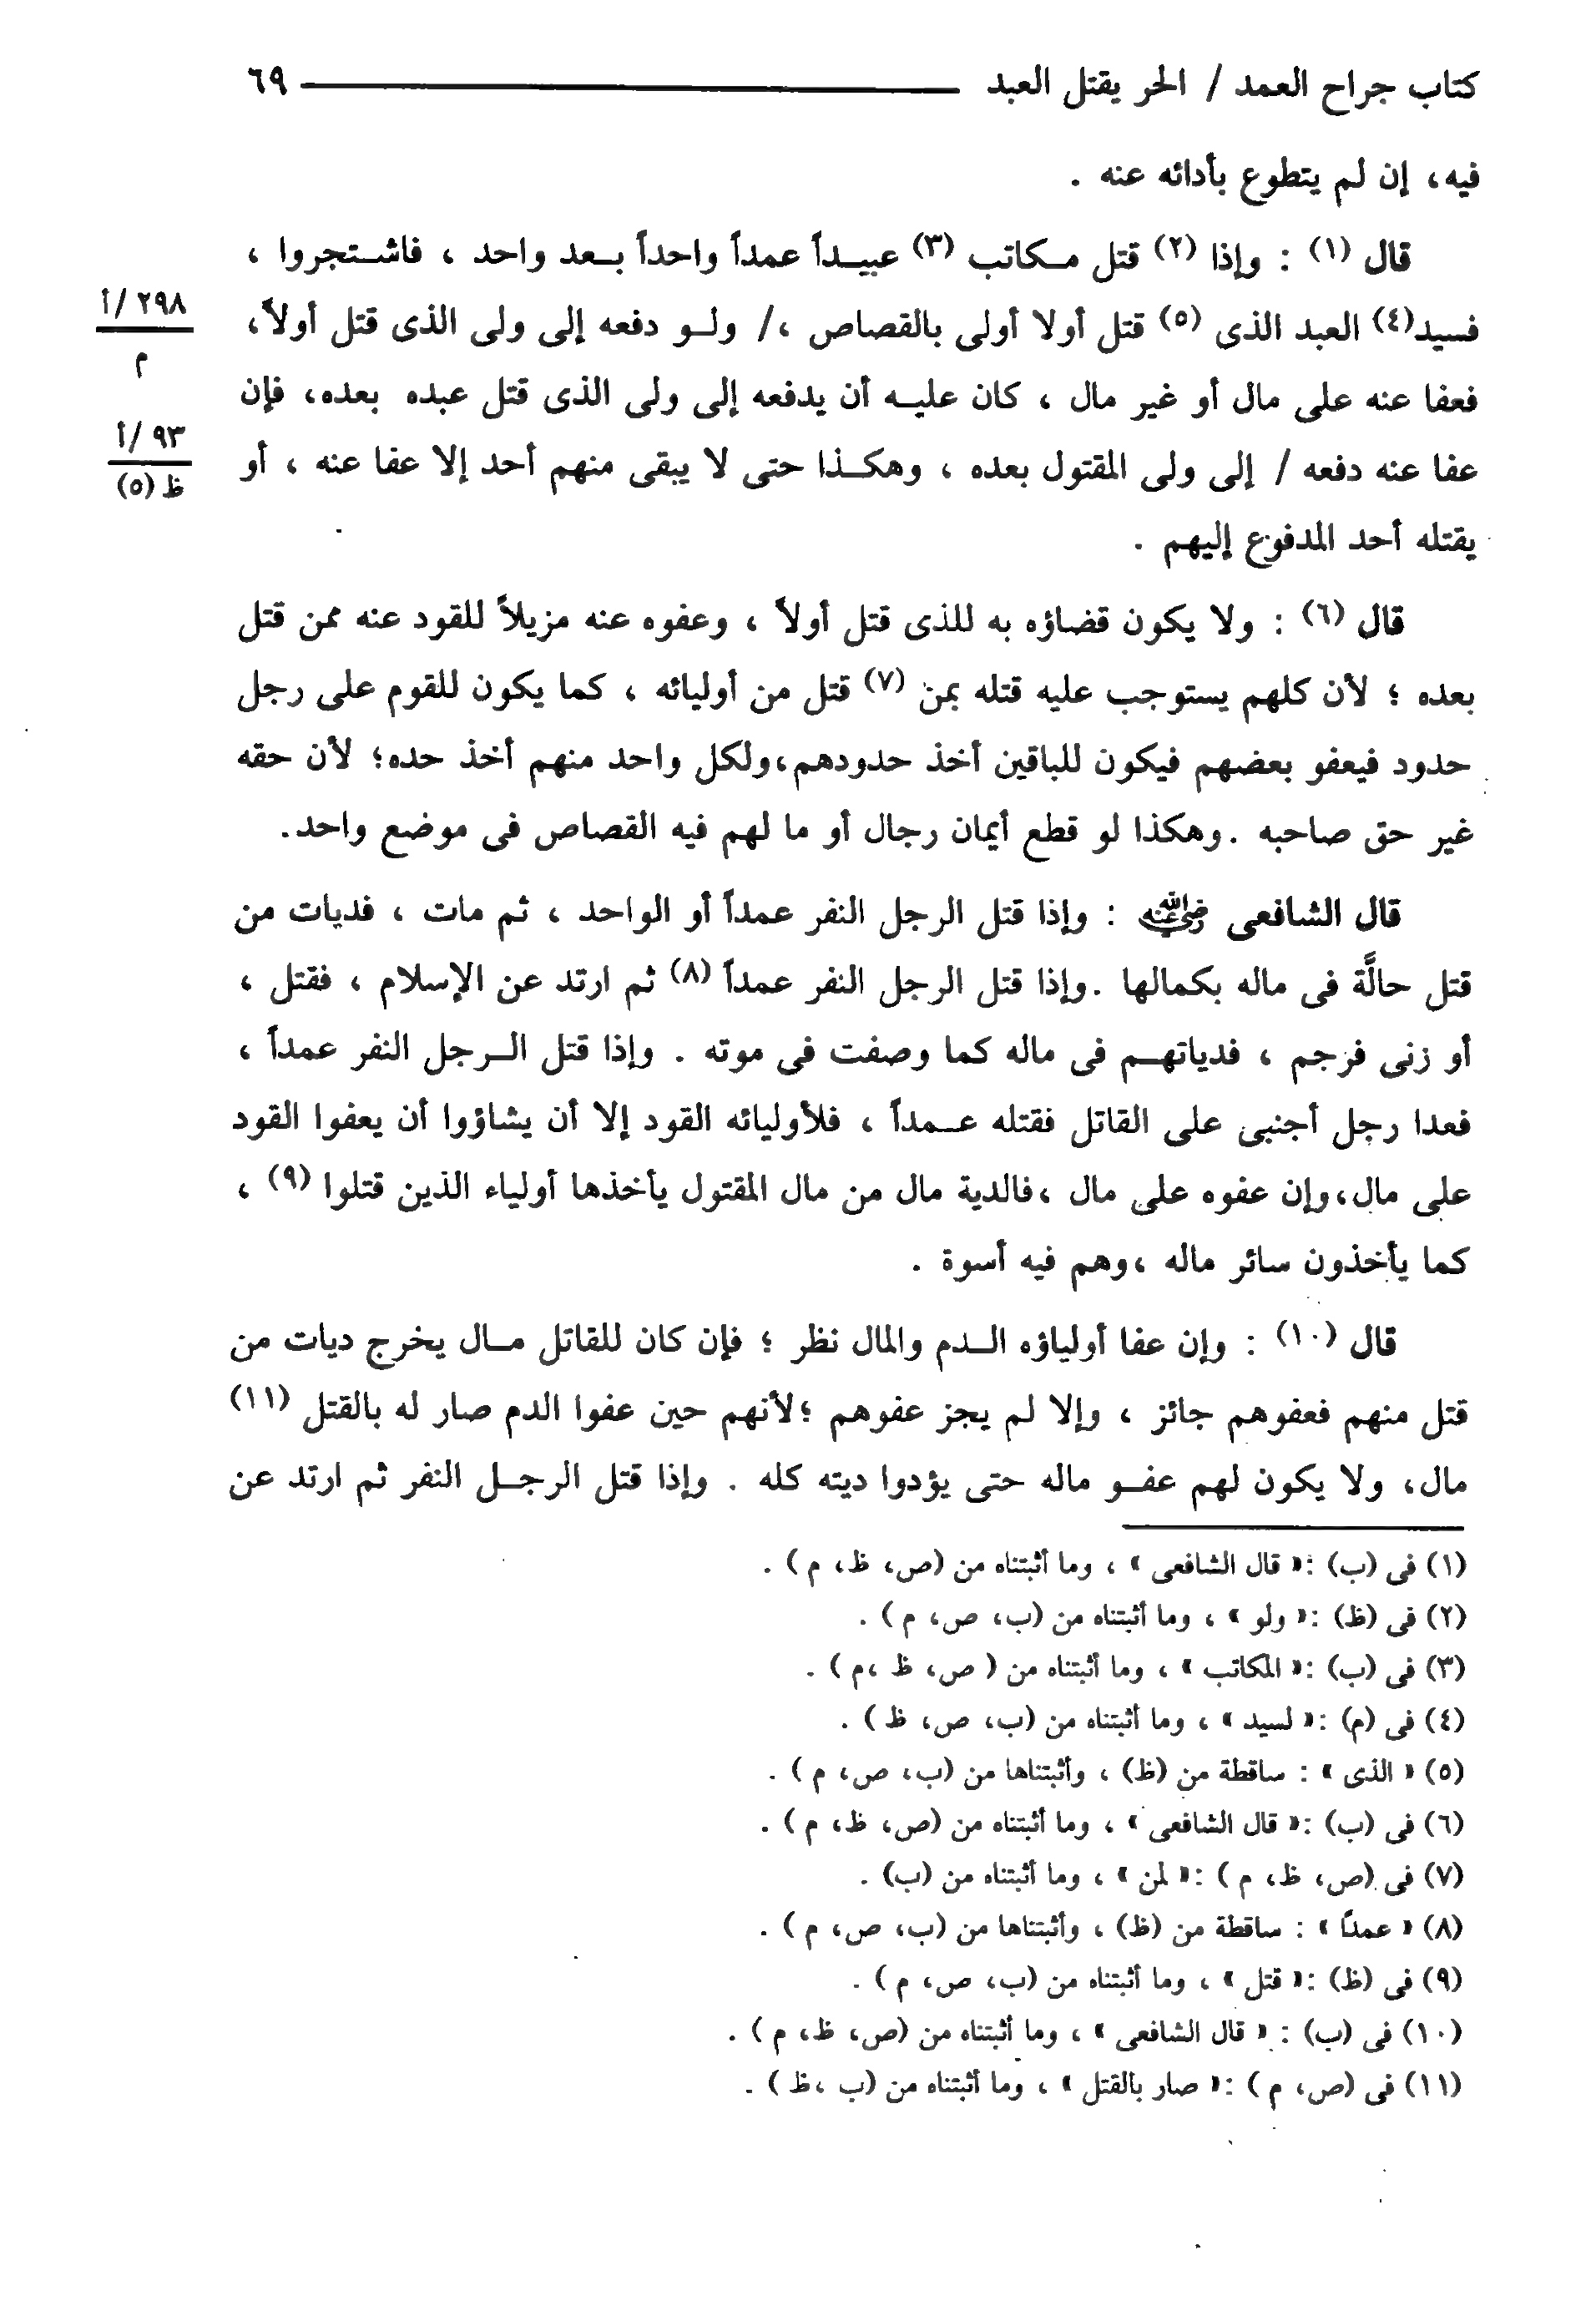 كتاب جراح العمد / الحر يقتل العبد ٦٩
فيه، إن لم يتطوع بأدائه عنه .
قال (١) : وإذا (٢) قتل مكاتب (٣) عبيداً عمداً واحداً بعد واحد ، فاشتجروا ،
فسيد(٤) العبد الذى (٥) قتل أولا أولى بالقصاص ،/ ولو دفعه إلى ولى الذى قتل أولاً،
٢٩٨ /أ
م
فعفا عنه على مال أو غير مال ، كان عليه أن يدفعه إلى ولى الذى قتل عبده بعده، فإن
عفا عنه دفعه / إلى ولى المقتول بعده ، وهكذا حتى لا يبقى منهم أحد إلا عفا عنه ، أو
٩٣ /أ
ظ (٥)
يقتله أحد المدفوع إليهم .
قال (٦) : ولا يكون قضاؤه به للذى قتل أولاً ، وعفوه عنه مزيلاً للقود عنه ممن قتل
بعده ؛ لأن كلهم يستوجب عليه قتله بمن (٧) قتل من أوليائه ، كما يكون للقوم على رجل
حدود فيعفو بعضهم فيكون للباقين أخذ حدودهم،ولكل واحد منهم أخذ حده؛ لأن حقه
غير حق صاحبه .وهكذا لو قطع أيمان رجال أو ما لهم فيه القصاص فى موضع واحد.
قال الشافعى رضي الله عنه : وإذا قتل الرجل النفر عمداً أو الواحد ، ثم مات ، فديات من
قتل حالَّة فى ماله بكمالها .وإذا قتل الرجل النفر عمداً (٨) ثم ارتد عن الإسلام ، فقتل ،
أو زنى فرجم ، فدياتهم فى ماله كما وصفت فى موته . وإذا قتل الرجل النفر عمداً ،
فعدا رجل أجنبى على القاتل فقتله عمداً ، فلأوليائه القود إلا أن يشاؤوا أن يعفوا القود
على مال،وإن عفوه على مال ،فالدية مال من مال المقتول يأخذها أولياء الذين قتلوا (٩) ،
كما يأخذون سائر ماله ،وهم فيه أسوة .
قال (١٠) : وإن عفا أولياؤه الدم والمال نظر ؛ فإن كان للقاتل مال يخرج ديات من
قتل منهم فعفوهم جائز ، وإلا لم يجز عفوهم ؛لأنهم حين عفوا الدم صار له بالقتل (١١)
مال، ولا يكون لهم عفو ماله حتى يؤدوا ديته كله . وإذا قتل الرجل النفر ثم ارتد عن
(١) فى (ب) :« قال الشافعى » ، وما أثبتناه من (ص، ظ، م ) .
(٢) فى (ظ) :« ولو » ، وما أثبتناه من (ب، ص، م ) .
(٣) فى (ب) :« المكاتب » ، وما أثبتناه من ( ص، ظ ،م ) .
(٤) فى (م) :« لسيد » ، وما أثبتناه من (ب، ص، ظ ) .
(٥) « الذى » : ساقطة من (ظ) ، وأثبتناها من (ب، ص، م ) .
(٦) فى (ب) :« قال الشافعى » ، وما أثبتناه من (ص، ظ، م ) .
(٧) فى (ص، ظ، م ) :« لمن » ، وما أثبتناه من (ب) .
(٨) « عمداً » : ساقطة من (ظ) ، وأثبتناها من (ب، ص، م ) .
(٩) فى (ظ) :« قتل » ، وما أثبتناه من (ب، ص، م ) .
(١٠) فى (ب) : « قال الشافعى » ، وما أثبتناه من (ص، ظ، م ) .
(١١) فى (ص، م ) :« صار بالقتل » ، وما أثبتناه من (ب ،ظ ) .